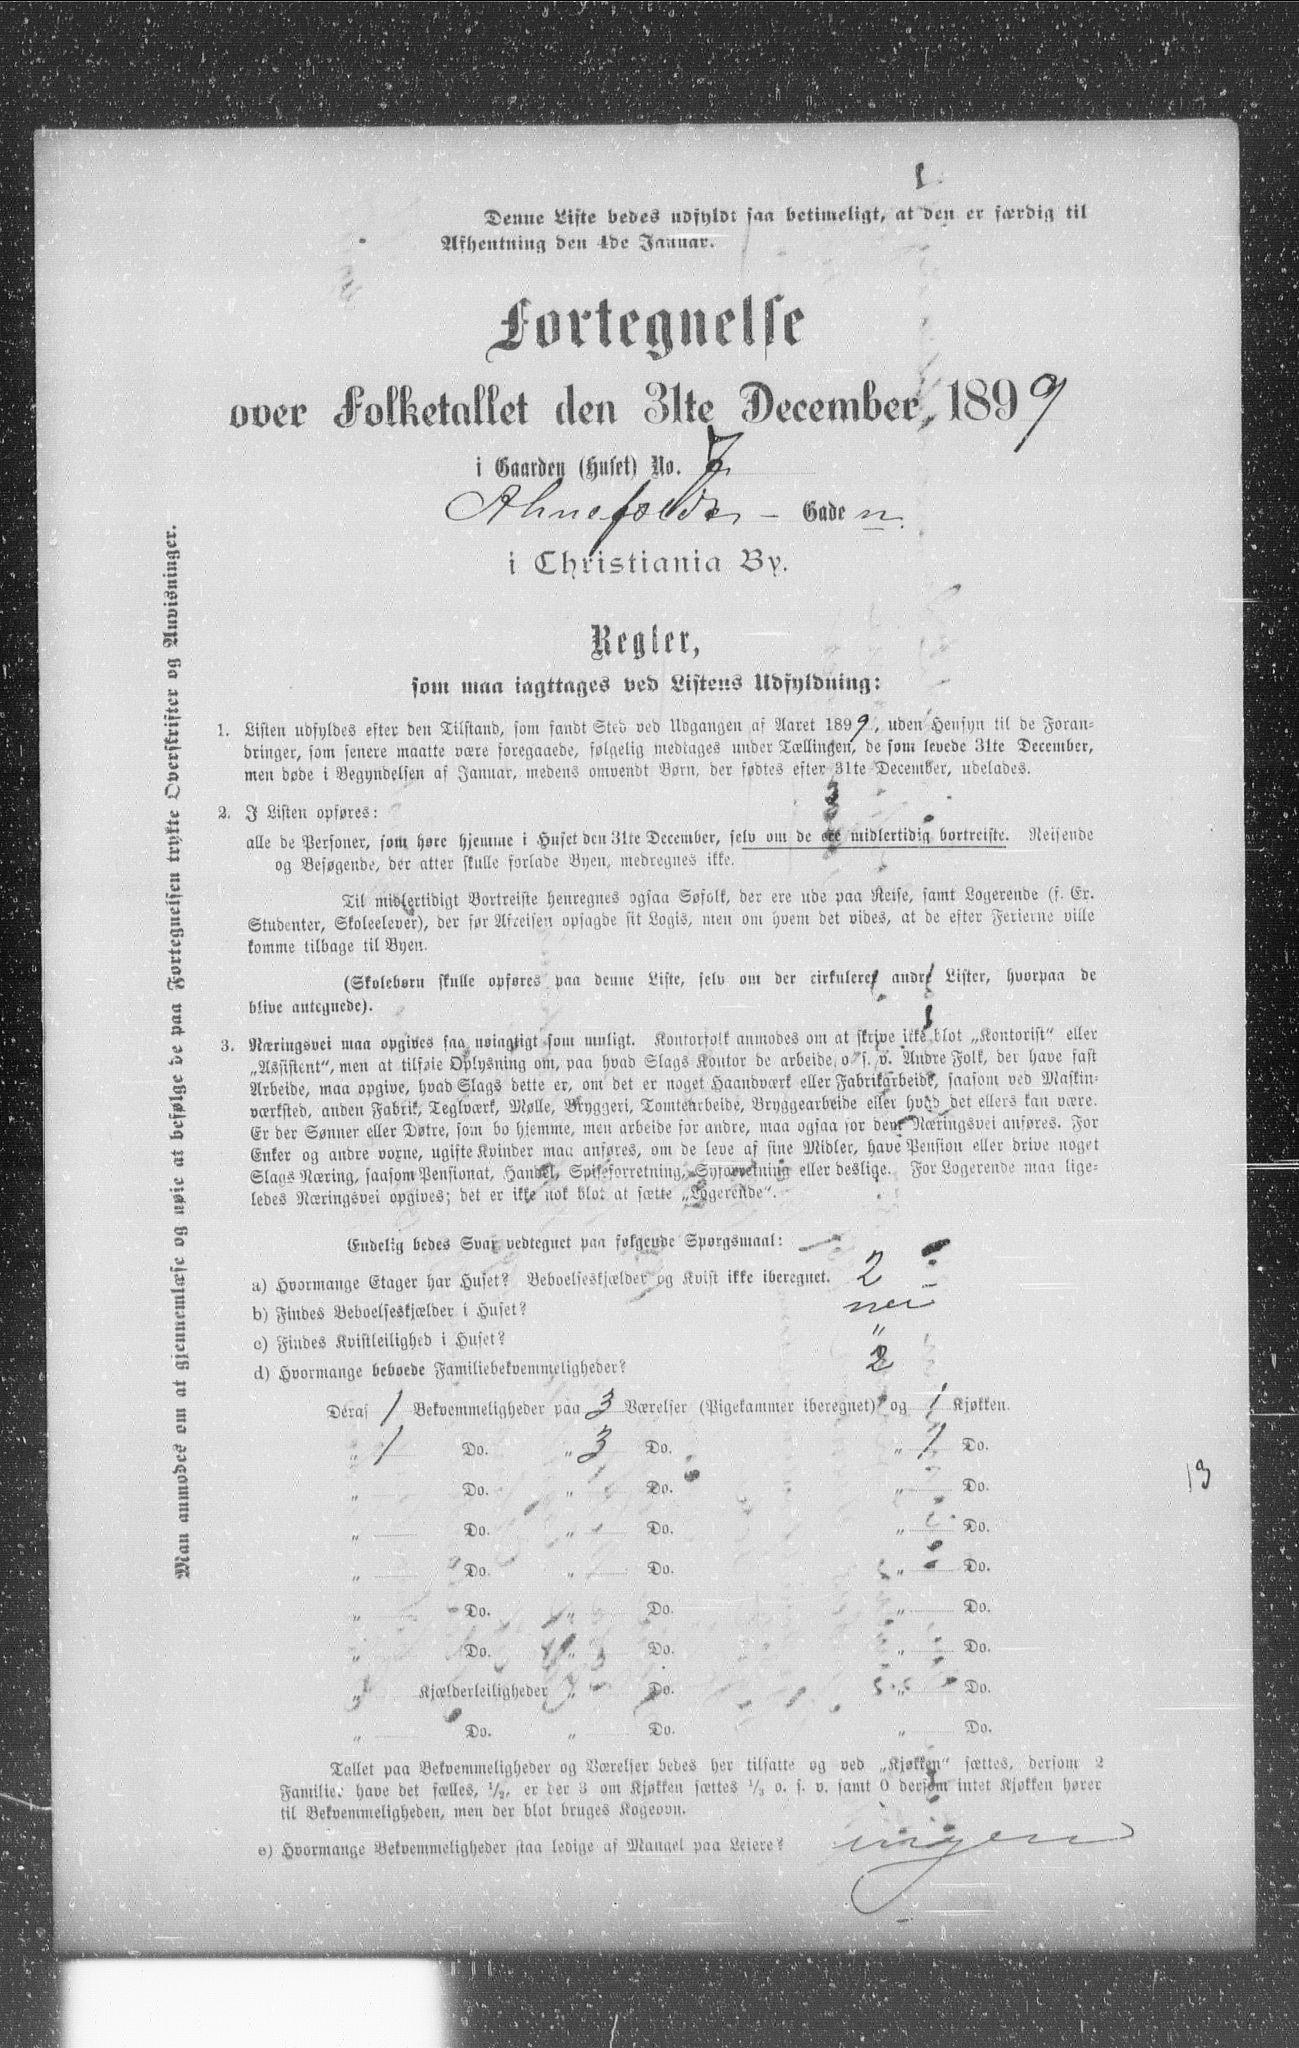 Denne Liste bedes udfyldt saa betimeligt, at den er færdig til
Afhentning den 4de Januar.
Fortegnelse
over Folketallet den 31te December 1899
i Gaarden (Huset) No. 7
Gade n.
i Christiania By.
Regler,
som maa iagttages ved Listens Udfyldning:
1. Listen udfyldes efter den Tilstand, som fandt Sted ved Udgangen af Aaret 1899, uden Hensyn til de Foran-
dringer, som senere maatte være foregaaede, følgelig medtages under Tællingen, de som levede 31te December,
men døde i Begyndelsen af Januar, medens omvendt Børn, der fødtes efter 31te December, udelades.
2. I Listen opføres:
alle de Personer, som høre hjemme i Huset den 31te December, selv om de ere midlertidig bortreiste. Reisende
og Besøgende, der atter skulle forlade Byen, medregnes ikke.
Til midlertidigt Bortreiste henregnes ogsaa Søfolk, der ere ude paa Reise, samt Logerende (f. Ex.
Studenter, Skoleelever), der før Afreisen opsagde sit Logis, men om hvem det vides, at de efter Ferierne ville
komme tilbage til Byen.
(Skolebørn skulle opføres paa denne Liste, selv om der cirkulerer andre Lister, hvorpaa de
blive antegnede).
3. Næringsvei maa opgives saa nøiagtigt som muligt. Kontorfolk anmodes om at skrive ikke blot „Kontorist“ eller
„Assistent“, men at tilføie Oplysning om, paa hvad Slags Kontor de arbeide o. s. v. Andre Folk, der have fast
Arbeide, maa opgive, hvad Slags dette er, om det er noget Haandværk eller Fabrikarbeide, saasom ved Maskin-
værksted, anden Fabrik, Teglværk, Mølle, Bryggeri, Tomtearbeide, Bryggearbeide eller hvad det ellers kan være.
Er der Sønner eller Døtre, som bo hjemme, men arbeide for andre, maa ogsaa for dem Næringsvei anføres. For
Enker og andre voxne, ugifte Kvinder maa anføres, om de leve af sine Midler, have Pension eller drive noget
Slags Næring, saasom Pensionat, Handel, Spiseforretning, Syforretning eller deslige. For Logerende maa lige-
ledes Næringsvei opgives; det er ikke nok blot at sætte „Logerende“.
Endelig bedes Svar vedtegnet paa følgende Spørgsmaal:
a) Hvormange Etager har Huset? Beboelseskjælder og Kvist ikke iberegnet. 2
b) Findes Beboelseskjælder i Huset? nei
c) Findes Kvistleilighed i Huset? "
d) Hvormange beboede Familiebekvemmeligheder? 2
Deraf 1 Bekvemmeligheder paa 3 Værelser (Pigekammer iberegnet) og 1 Kjøkken.
„ 1 Do. „ 3 Do. „ 1 Do.
„ Do. „ Do. „ Do.
13
„ Do. „ Do. „ Do.
„ Do. „ Do. „ Do.
„ Do. „ Do. „ Do.
„ Do. „ Do. „ Do.
„ Kjælderleiligheder „ Do. „ Do.
„ Do. „ Do. „ Do.
Tallet paa Bekvemmeligheder og Værelser bedes her tilsatte og ved „Kjøkken“ sættes, dersom 2
Familier have det fælles, 1/2, er der 3 om Kjøkken sættes 1/3 o. s. v. samt 0 dersom intet Kjøkken hører
til Bekvemmeligheden, men der blot bruges Kogeovn.
e) Hvormange Bekvemmeligheder staa ledige af Mangel paa Leiere? ingen
Man anmodes om at gjennemlæse og nøie at befølge de paa Fortegnelsen trykte Overskrifter og Anvisninger.